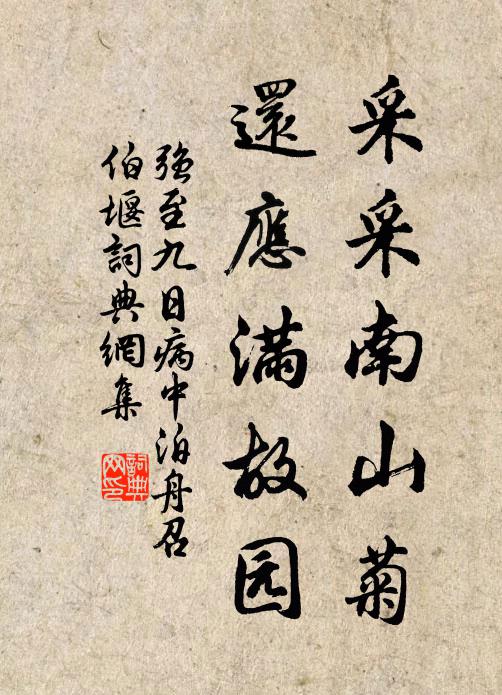 采采南山菊
還應滿故园
強至九日病中泊舟召
伯堰詞典網集
詞典網印